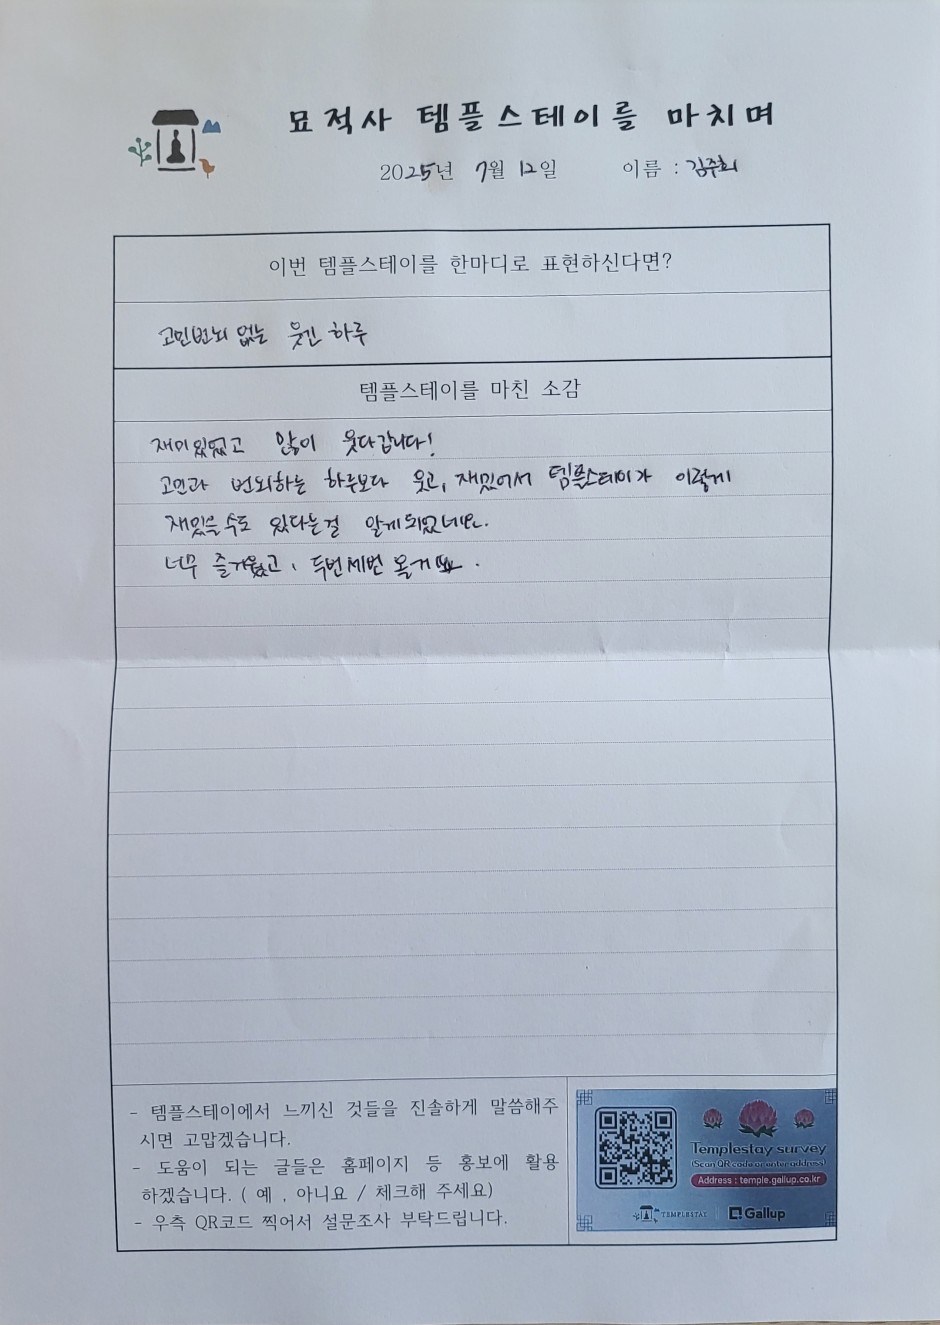 묘적사 템플스테이를 마치며
2025년 7월 12일 이름 : 김주희
이번 템플스테이를 한마디로 표현하신다면?
고민번뇌 없는 웃긴 하루
템플스테이를 마친 소감
재미있었고 많이 웃다갑니다!
고민과 번뇌하는 하루보다 웃고, 재밌어서 템플스테이가 이렇게
재밌을 수도 있다는걸 알게되었네요.
너무 즐거웠고, 두번세번 올거
- 템플스테이에서 느끼신 것들을 진솔하게 말씀해주
시면 고맙겠습니다.
- 도움이 되는 글들은 홈페이지 등 홍보에 활용
하겠습니다. ( 예 , 아니요 / 체크해 주세요)
- 우측 QR코드 찍어서 설문조사 부탁드립니다.
Templestay survey
(Scan QR code or enter address)
Address : temple.gallup.co.kr
TEMPLESTAY Gallup